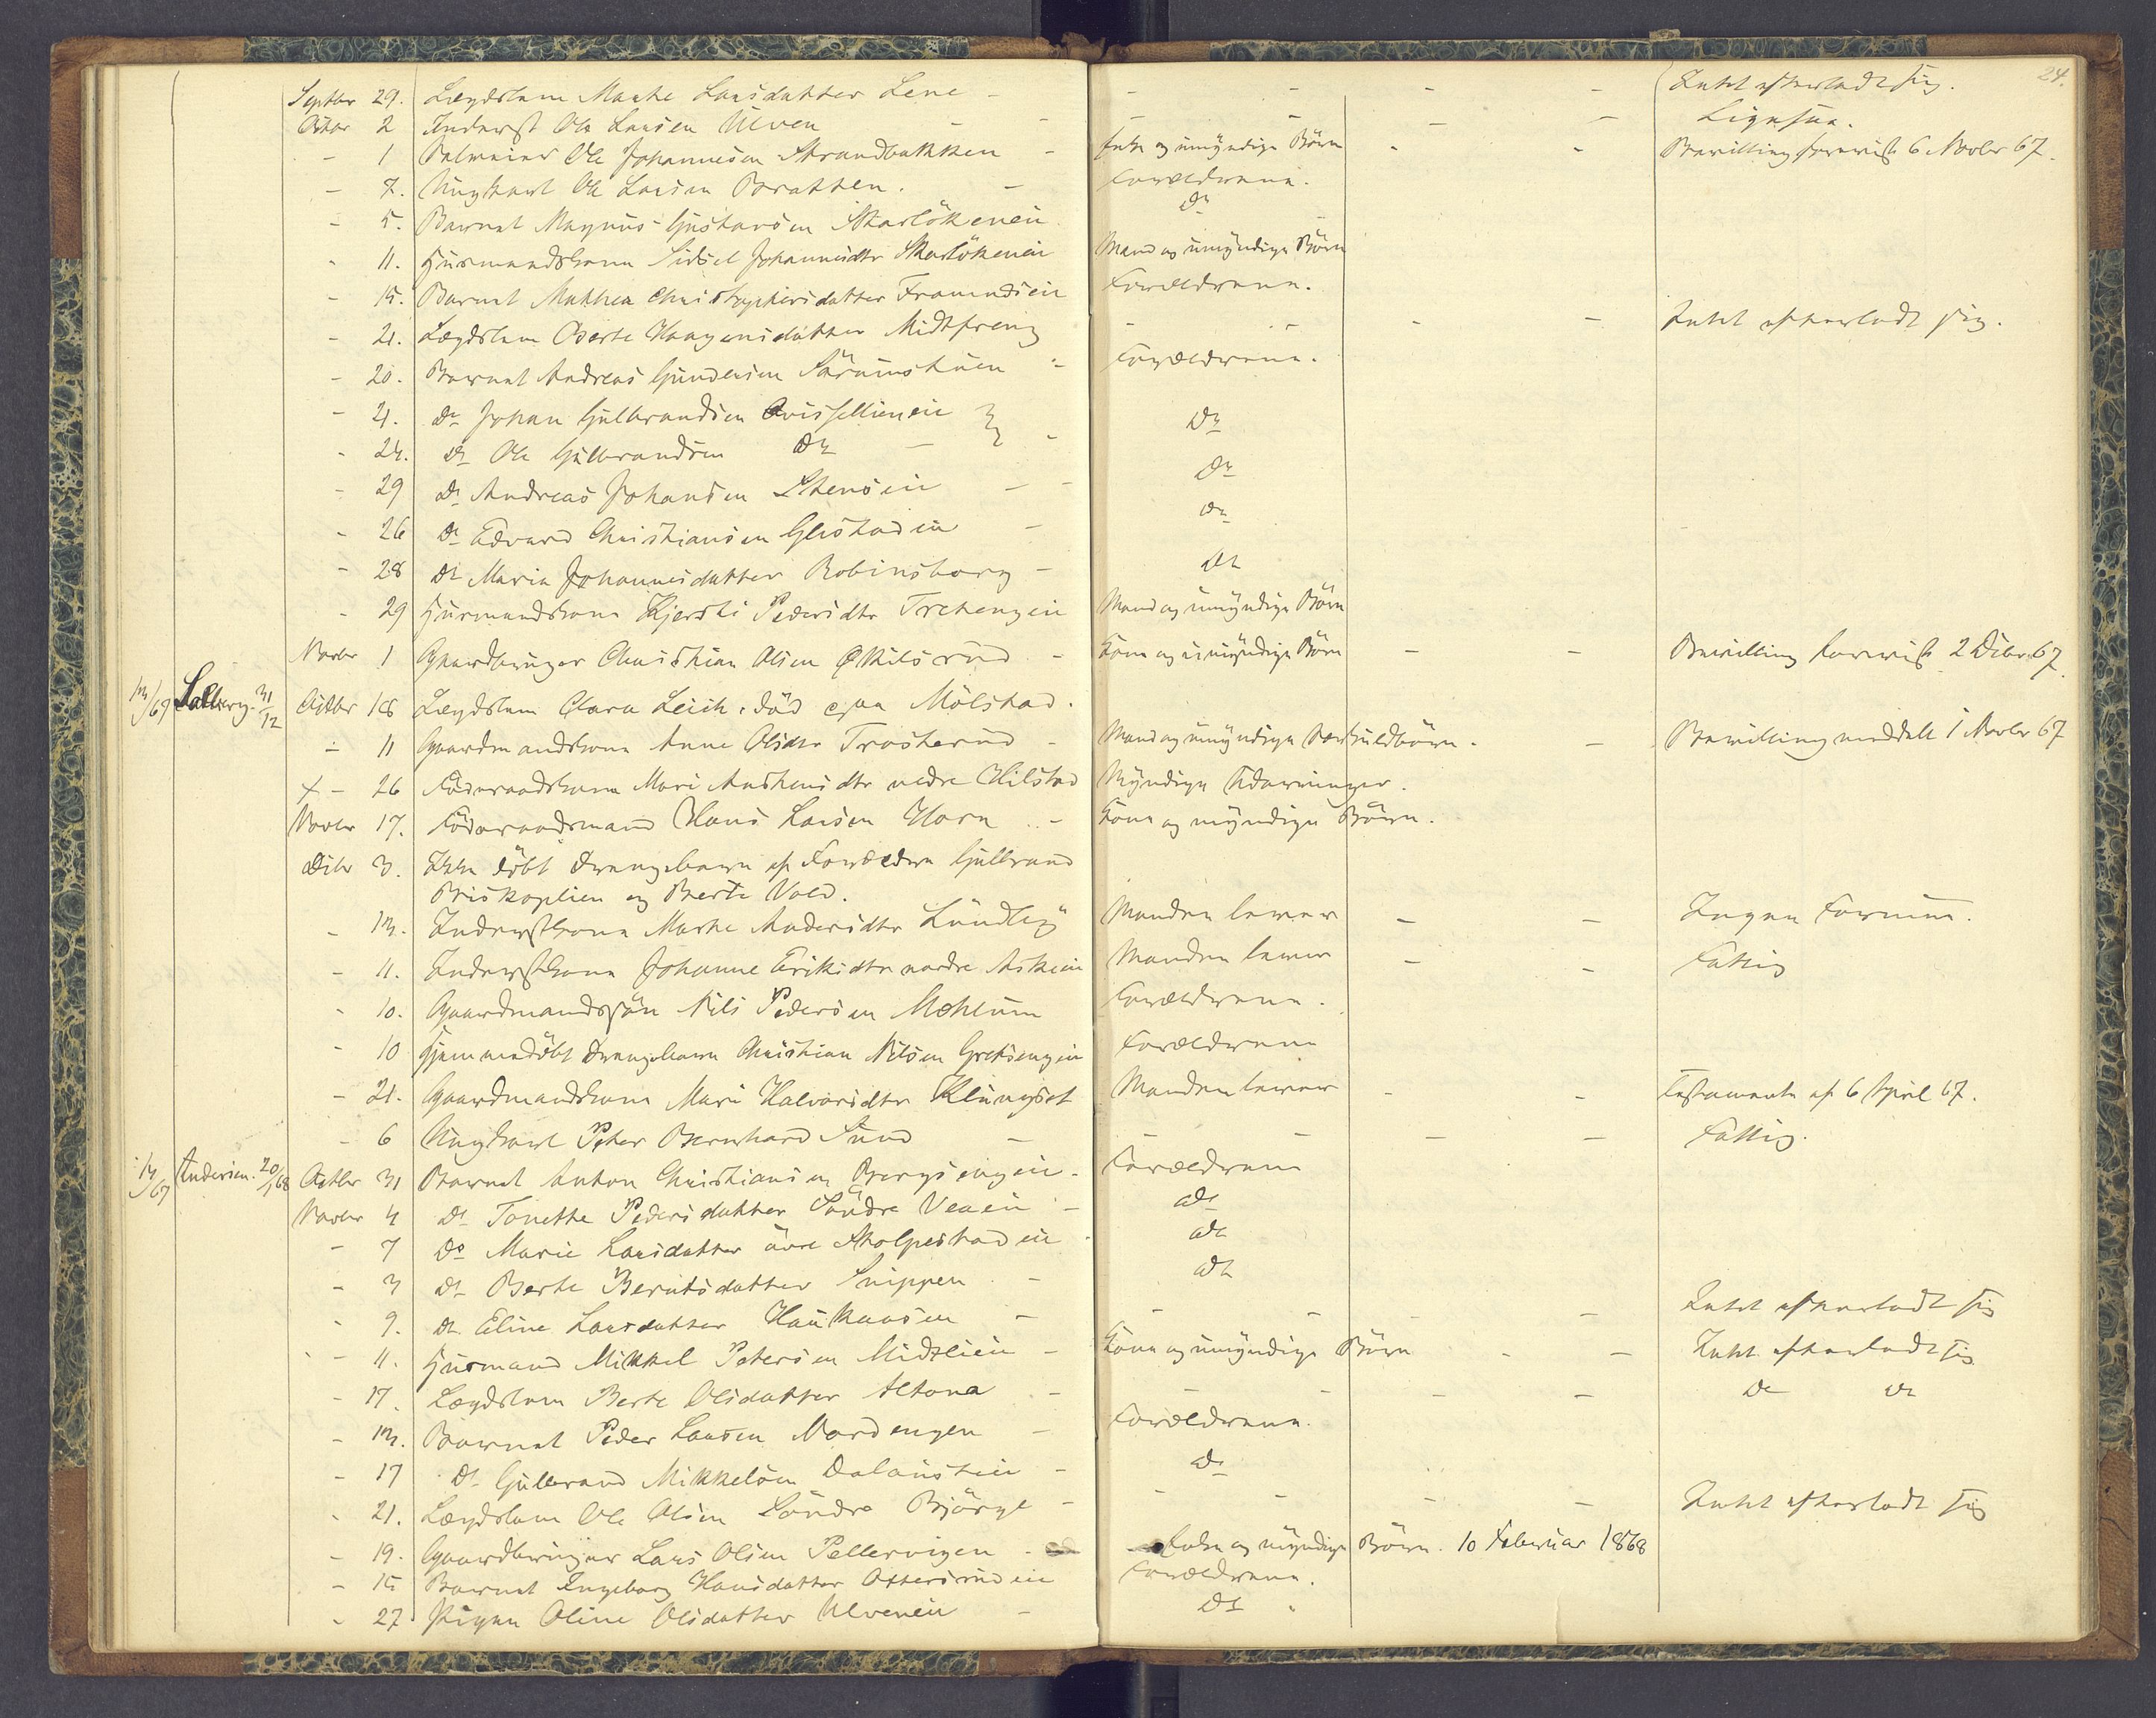 24.
Septbr 29. Lægdslem Marthe Larsdatter Lene - - - - - Intet efterladt sig.
Octbr 2 Inderst Ole Larsen Ulven - - - - Ligesaa.
- 1 Ole Johannesen Strandbakken - Enke og umyndige Børn - - Bevilling forevist 6 Novbr 67.
- 7. Ungkarl Ole Larsen Braatten. - Forældrene.
- 5. Barnet Magnus Gustavsen Skarlökeneie Do
- 11. Husmandskone Sidsel Johannesdtr Skarlökeneie Mand og umyndige Børn
- 15. Barnet Mathea Christophersdatter Framndseie Forældrene.
- 21. Lægdslem Berte Haagensdatter Midtfreng - - - - Intet efterladt sig.
- 20. Barnet Andreas Gundersen Sörumstuen - Forældrene.
- 21. Do Johan Gulbrandsen Do
- 24. Do Ole Gulbrandsen Do -
- 29 Do Andreas Johansen Stenseie - - Do
- 26 Do Edvard Christiansen Glestadeie - Do
- 28 Do Maria Johannesdatter Robinsborg - Do
- 29 Husmandskone Kjersti Pedersdtr Tretengeie Mand og umyndige Børn
Novbr 1 Gaardbruger Christian Olsen Eskilsrud - Kone og umyndige Børn - - Bevilling forevist 2 Dcbr 67.
13/69 Solberg 31/12 Octbr 18 Lægdslem Clara Leich, död paa Mölstad.
- 11 Gaardmandskone Anne Olsdtr Trosterud - Mand og umyndige - Bevilling meddelt 1 Novbr 67
+ - 26 Föderaadskone Mari Austensdtr nedre Hilstad Myndige Udarvinger.
Novbr 17. Föderaadsmand Hans Larsen Horn - Kone og myndige Børn.
Dcbr 3. Ikke döbt Drengebarn af Forældre Gulbrand
Briskoplien og Berte Vold.
- 13. Inderstkone Marthe Andersdtr Lundby Manden lever - - Ingen Formue.
- 11. Inderstkone Johanne Eriksdtr nordre Askeie Manden lever - - Fattig
- 10. Gaardmandssön Nils Pedersen Mehlum Forældrene.
- 10 Hjemmedöbt Drengebarn Christian Nilsen Gretsengeie Forældrene
- 21. Gaardmandskone Mari Halvorsdtr Klungset Manden lever - - Testamente af 6 April 67.
- 6 Ungkarl Peter Bernhard Sund - - - - - Fattig.
14/67 Andersen 20/1 68 Octbr 31 Barnet Anton Christiansen Bergsengeie - Forældrene
Novbr 4 Do Tonette Pedersdatter Söndre Veaeie - Do
- 7 Do Marie Larsdatter övre Skolpestadeie - Do
- 3 Do Berte Berntsdatter Snippen - Do
- 9. Do Eline Larsdatter Haukaasen - - - - Intet efterladt sig
- 11. Husmand Mikkel Petersen Midtlien - Kone og umyndige Børn - - Intet efterladt sig
- 17. Lægdslem Berte Olsdatter Altona - - - - - Do Do
- 13. Barnet Peder Larsen Nordengen - Forældrene.
- 17 Do Gulbrand Mikkelsen Dalaustuen - Do
- 21. Lægdslem Ole Olsen Söndre Björge - - - - - Intet efterladt sig
- 19. Gaardbruger Lars Olsen Pellervigen - Enke og myndige Børn. 10 Februar 1868
- 15 Barnet Ingeborg Hansdatter Ottersrudeie Forældrene.
- 27. Pigen Oline Olsdatter Ulveneie - Do